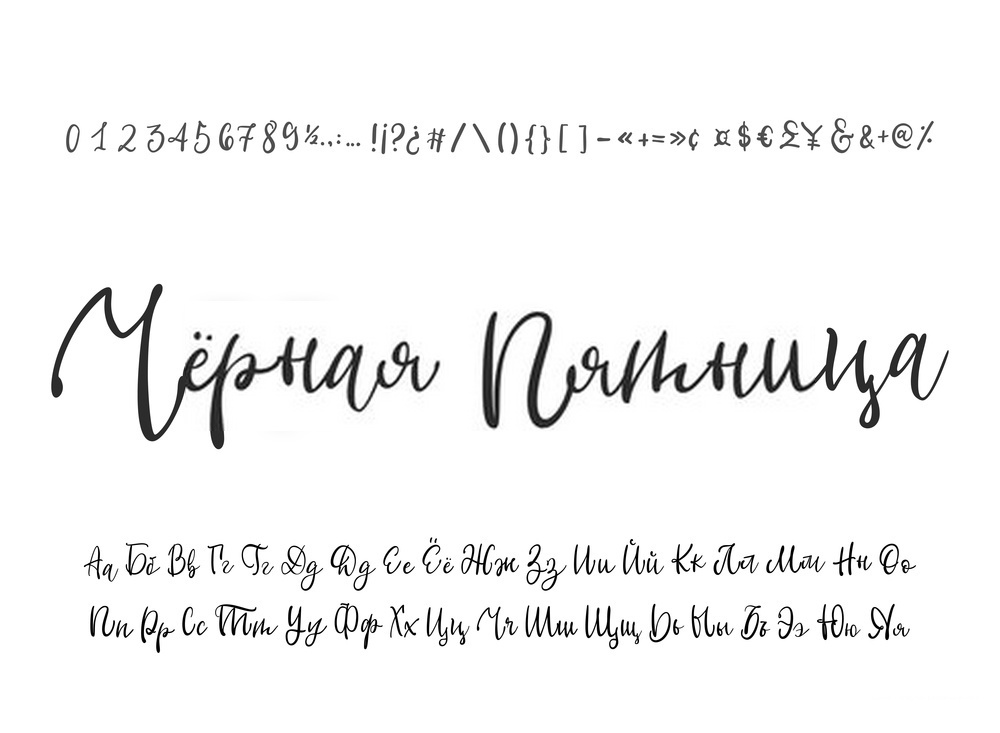 0 1 2 3 4 5 6 7 8 9 ½ . , : ; ... ! ¡ ? ¿ # / \ ( ) { } [ ] - « + = » ¢ ¤ $ € £ ¥ & & + @ %
Чёрная Пятница
Аа Бб Вв Гг Гг Дд Дд Ее Ёё Жж Зз Ии Йй Кк Лл Мм Нн Оо
Пп Рр Сс Тт Уу Фф Хх Цц Чч Шш Щщ Ьь Ыы Ъъ Ээ Юю Яя